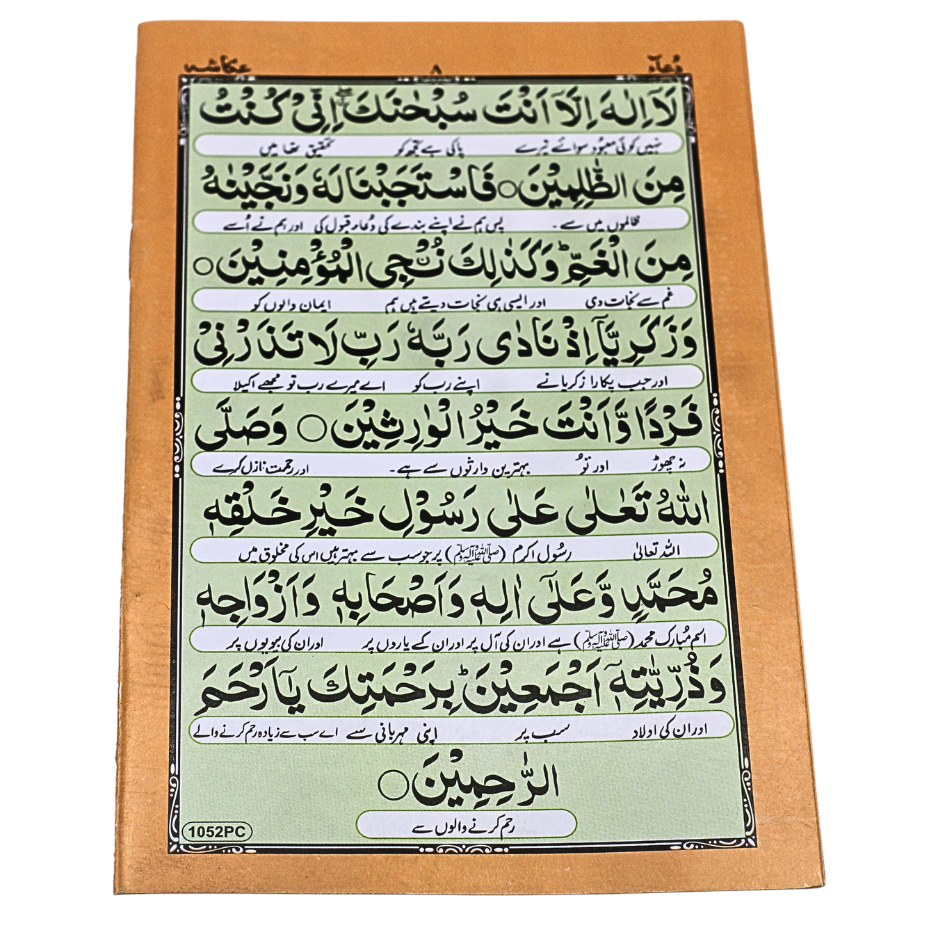 دُعاءِ ۸ عکاشہ
لَاۤ اِلٰهَ اِلَّاۤ اَنْتَ سُبْحٰنَكَ ۖ اِنِّیْ كُنْتُ
نہیں کوئی معبُود سوائے تیرے پاکی ہے تجھ کو تحقیق تھا میں
مِنَ الظّٰلِمِیْنَ ○ فَاسْتَجَبْنَا لَهٗ وَنَجَّیْنٰهُ
ظالموں میں سے ۔ پس ہم نے اپنے بندے کی دُعاء قبول کی اور ہم نے اُسے
مِنَ الْغَمِّ ؕ وَكَذٰلِكَ نُـْۨجِی الْمُؤْمِنِیْنَ ○
غم سے نجات دی اور ایسی ہی نجات دیتے ہیں ہم ایمان والوں کو
وَزَكَرِیَّاۤ اِذْ نَادٰی رَبَّهٗ رَبِّ لَا تَذَرْنِیْ
اور جب پکارا زکریا نے اپنے رب کو اے میرے رب تو مجھے اکیلا
فَرْدًا وَّاَنْتَ خَیْرُ الْوٰرِثِیْنَ ○ وَصَلَّی
نہ چھوڑ اور تُو بہترین وارثوں سے ہے ۔ اور رحمت نازل کرے
اللّٰهُ تَعَالٰی عَلٰی رَسُوْلِ خَیْرِ خَلْقِهٖ
اللہ تعالیٰ رسُول اکرم (ﷺ) پر جو سب سے بہتر ہیں اس کی مخلوق میں
مُحَمَّدٍ وَّعَلٰۤی اٰلِهٖ وَاَصْحَابِهٖ وَاَزْوَاجِهٖ
اسم مُبارک محمد (ﷺ) ہے اور ان کی آل پر اور ان کے یاروں پر اور ان کی بیویوں پر
وَذُرِّیّٰتِهٖۤ اَجْمَعِیْنَ ؕ بِرَحْمَتِكَ یَاۤ اَرْحَمَ
اور ان کی اولاد سب پر اپنی مہربانی سے اے سب سے زیادہ رحم کرنے والے
الرّٰحِمِیْنَ ○
رحم کرنے والوں سے
1052PC